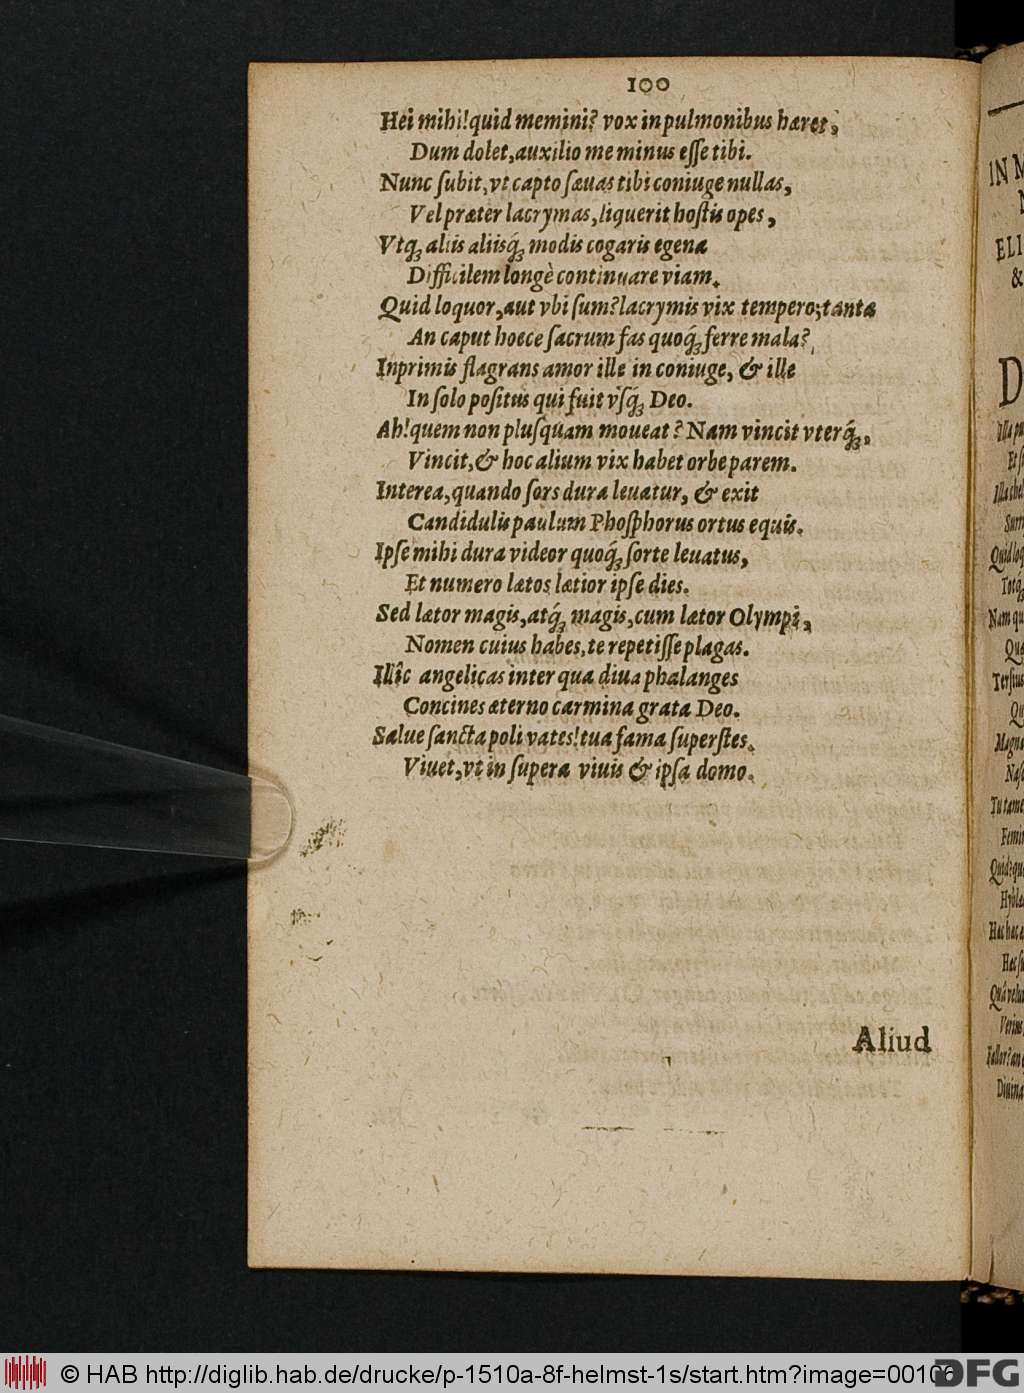 100
Hei mihi! quid memini? vox in pulmonibus hæret,
Dum dolet, auxilio me minus eſſe tibi.
Nunc ſubit, vt capto ſæuas tibi coniuge nullas,
Vel præter lacrymas, liquerit hoſtis opes,
Vtq́; aliis aliisq́; modis cogaris egena
Difficilem longè continuare viam.
Quid loquor, aut vbi ſum? lacrymis vix tempero; tanta
An caput hoece ſacrum fas quoq́; ferre mala?
Inprimis flagrans amor ille in coniuge, & ille
In ſolo poſitus qui fuit vſq́; Deo.
Ah! quem non pluſquam moueat? Nam vincit vterq́;,
Vincit, & hoc alium vix habet orbe parem.
Interea, quando ſors dura leuatur, & exit
Candidulis paulum Phoſphorus ortus equis.
Ipſe mihi dura videor quoq́; ſorte leuatus,
Et numero lætos lætior ipſe dies.
Sed lætor magis, atq́; magis, cum lætor Olympi,
Nomen cuius habes, te repetiſſe plagas.
Illîc angelicas inter qua diua phalanges
Concines æterno carmina grata Deo.
Salue ſancta poli vates! tua fama ſuperſtes,
Viuet, vt in ſupera viuis & ipſa domo.
Aliud
IN
ELI
&
D
© HAB http://diglib.hab.de/drucke/p-1510a-8f-helmst-1s/start.htm?image=00106
DFG